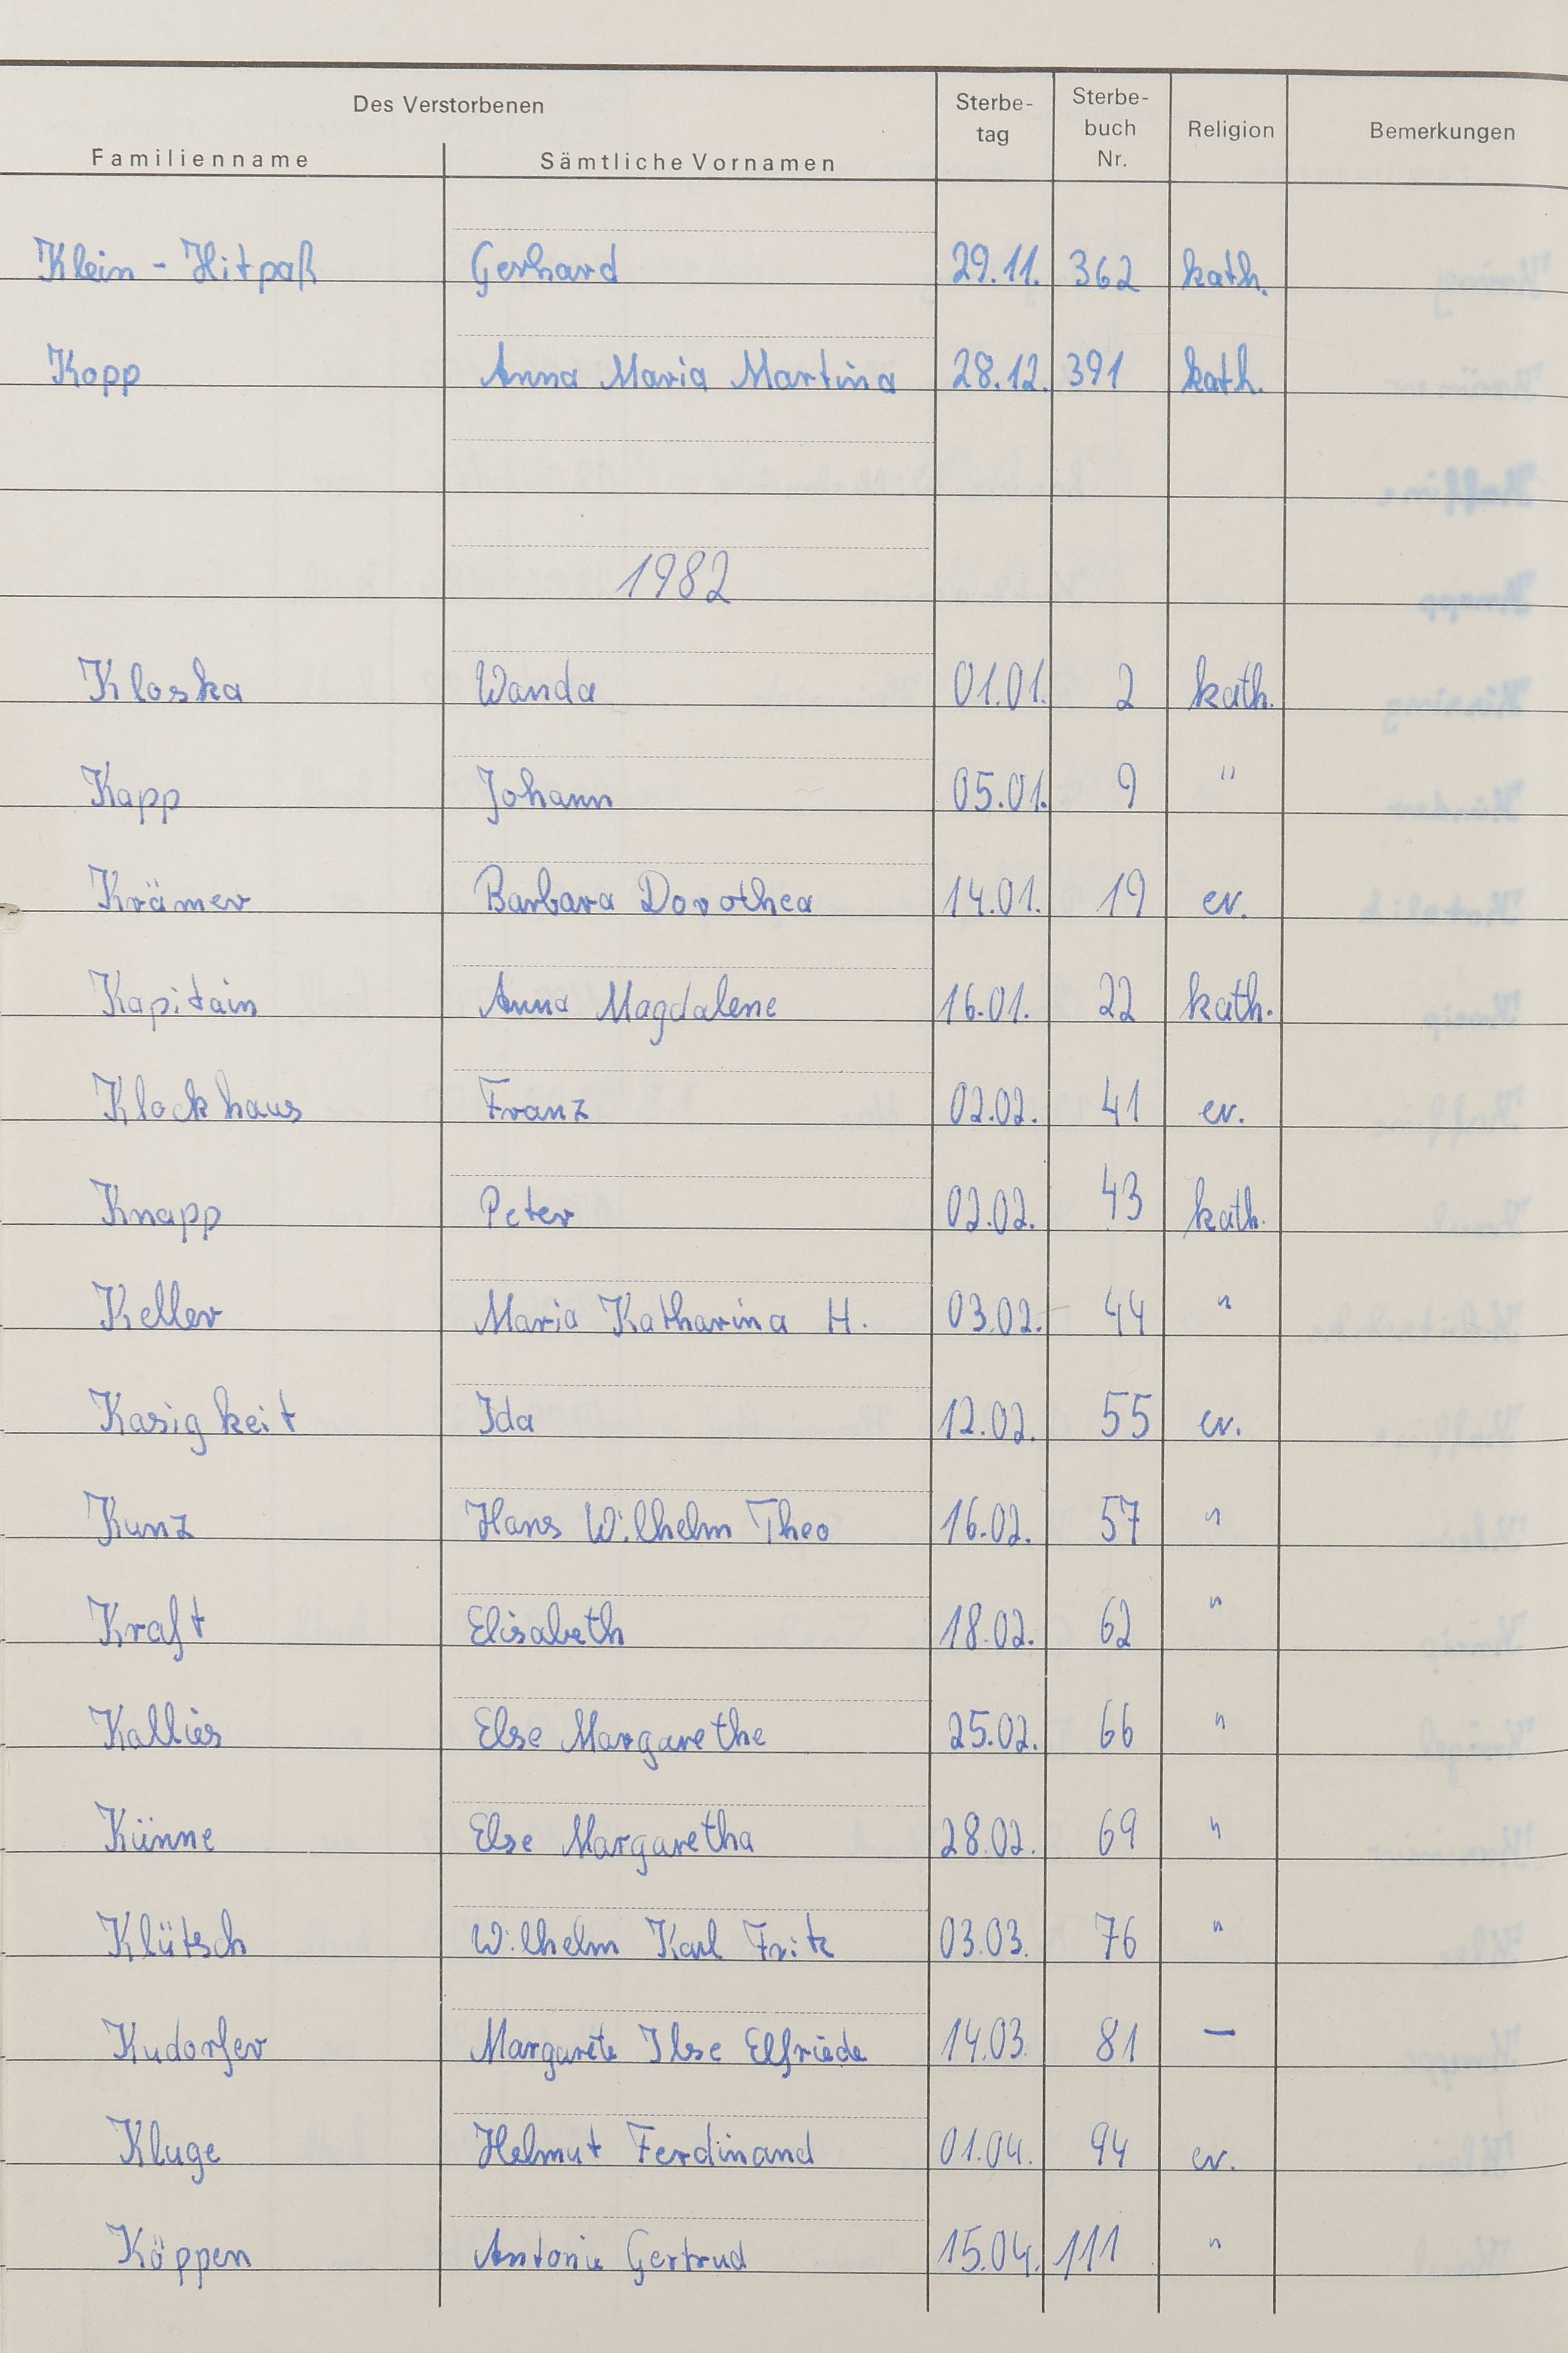 Des Verstorbenen
Familienname Sämtliche Vornamen Sterbe-tag Sterbe-buch Nr. Religion Bemerkungen
Klein-Hitpaß Gerhard 29.11. 362 kath.
Kopp Anna Maria Martina 28.12. 391 kath.
1982
Kloska Wanda 01.01. 2 kath.
Kapp Johann 05.01. 9 "
Krämer Barbara Dorothea 14.01. 19 ev.
Kapitain Anna Magdalene 16.01. 22 kath.
Klockhaus Franz 02.02. 41 ev.
Knapp Peter 02.02. 43 kath.
Keller Maria Katharina H. 03.02. 44 "
Kasigkeit Ida 12.02. 55 ev.
Kunz Hans Wilhelm Theo 16.02. 57 "
Kraft Elisabeth 18.02. 62 "
Kallies Else Margarethe 25.02. 66 "
Künne Else Margaretha 28.02. 69 "
Klütsch Wilhelm Karl Fritz 03.03. 76 "
Kudorfer Margarete Ilse Elfriede 14.03. 81 —
Kluge Helmut Ferdinand 01.04. 94 ev.
Köppen Antonie Gertrud 15.04. 111 "